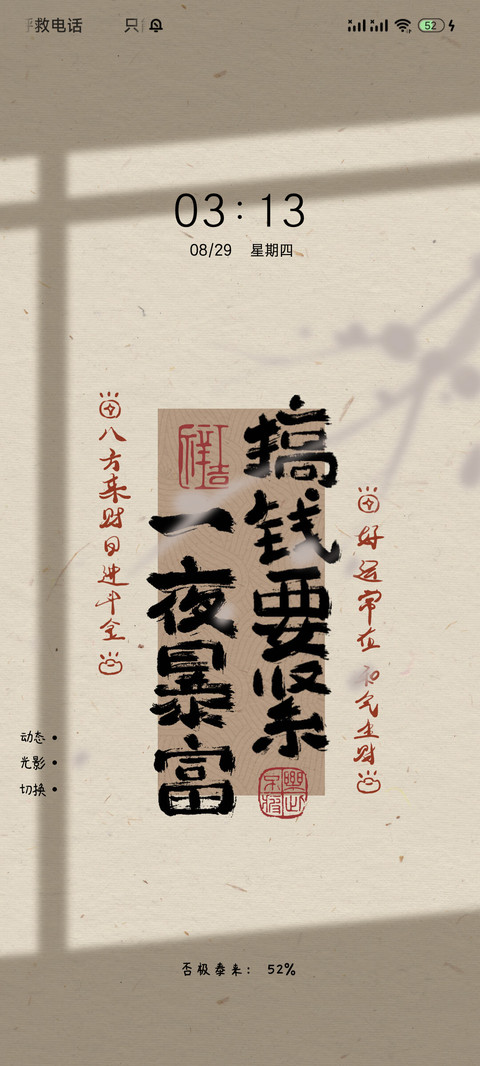 救电话 只 52
03:13
08/29 星期四
搞钱要紧
一夜暴富
八方来财日进斗金
好运常在 和气生财
动态
光影
切换
否极泰来: 52%